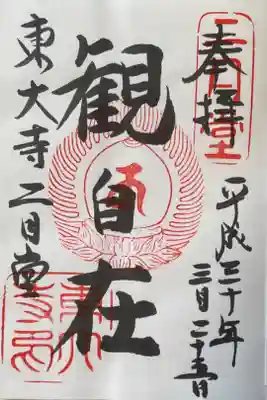 奉拝
平成三十年
三月二十五日
観自在
東大寺二月堂